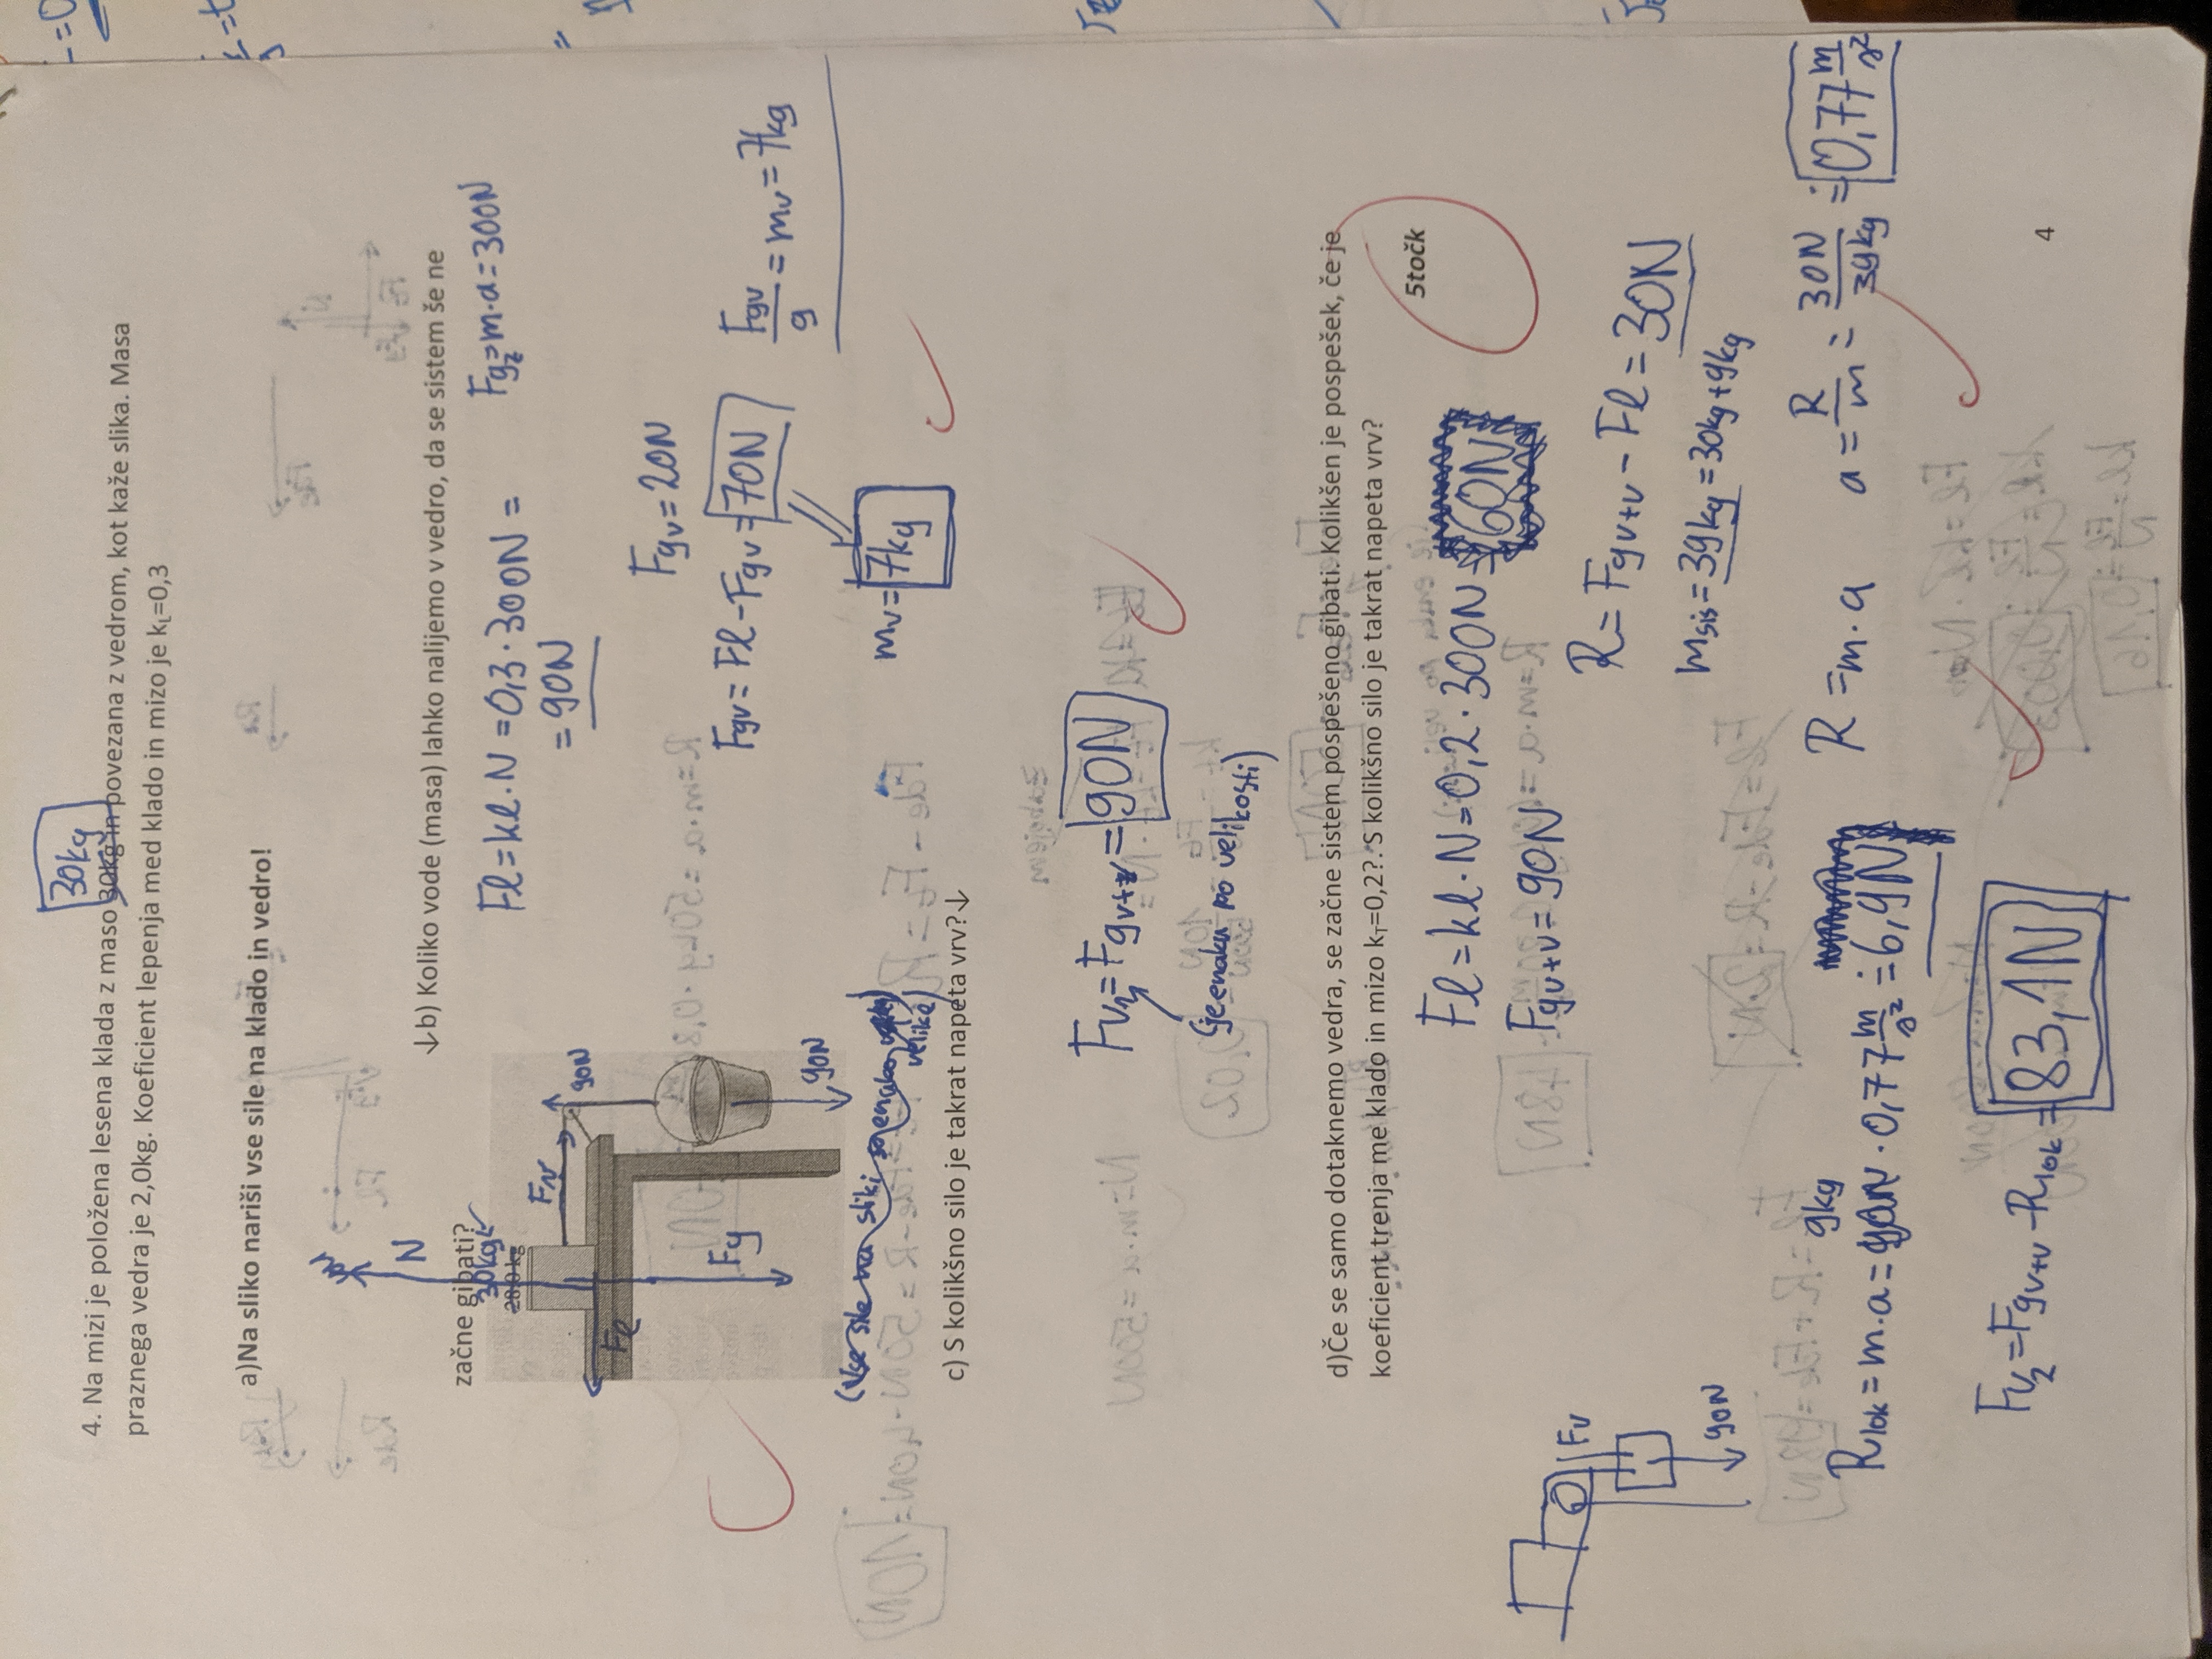 30kg
4. Na mizi je položena lesena klada z maso 30kg in povezana z vedrom, kot kaže slika. Masa
praznega vedra je 2,0kg. Koeficient lepenja med klado in mizo je kL=0,3
a)Na sliko nariši vse sile na klado in vedro!
N
↓b) Koliko vode (masa) lahko nalijemo v vedro, da se sistem še ne
začne gibati?
30kg
28,0 kg
Fl = kl · N = 0,3 · 300N =
= 90N
Fgz = m·a = 300N
Fv
90N
Fl
Fg
90N
Fgv = 20N
Fgv = Fl - Fgv = 70N
Fgv/g = mv = 7kg
mv = 7kg
(Vse sile na sliki so enako
velike)
c) S kolikšno silo je takrat napeta vrv?↓
Fv1 = Fgv+v = 90N
(je enaku po velikosti)
d)Če se samo dotaknemo vedra, se začne sistem pospešeno gibati. Kolikšen je pospešek, če je
koeficient trenja me klado in mizo kT=0,2?. S kolikšno silo je takrat napeta vrv?
5točk
Fl = kl · N = 0,2 · 300N = 60N
Fgv+v = 90N
R = Fgv+v - Fl = 30N
msis = 39kg = 30kg + 9kg
Fv
90N
R = m·a
a = R/m = 30N/39kg ≐ 0,77 m/s²
9kg
Rlok = m·a = · 0,77 m/s² ≐ 6,9N
Fv2 = Fgv+v - Rlok = 83,1N
4